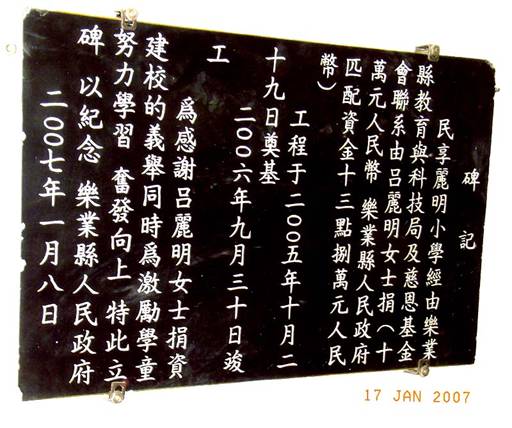 碑記
民享麗明小學經由樂業
縣教育與科技局及慈恩基金
會聯系由吕麗明女士捐(十
萬元人民幣 樂業縣人民政府
匹配資金十三點捌萬元人民
幣)
工程于二00五年十月二
十九日奠基
二00六年九月三十日竣
工
爲感謝吕麗明女士捐資
建校的義舉同時爲激勵學童
努力學習 奮發向上 特此立
碑 以紀念 樂業縣人民政府
二00七年一月八日
17 JAN 2007